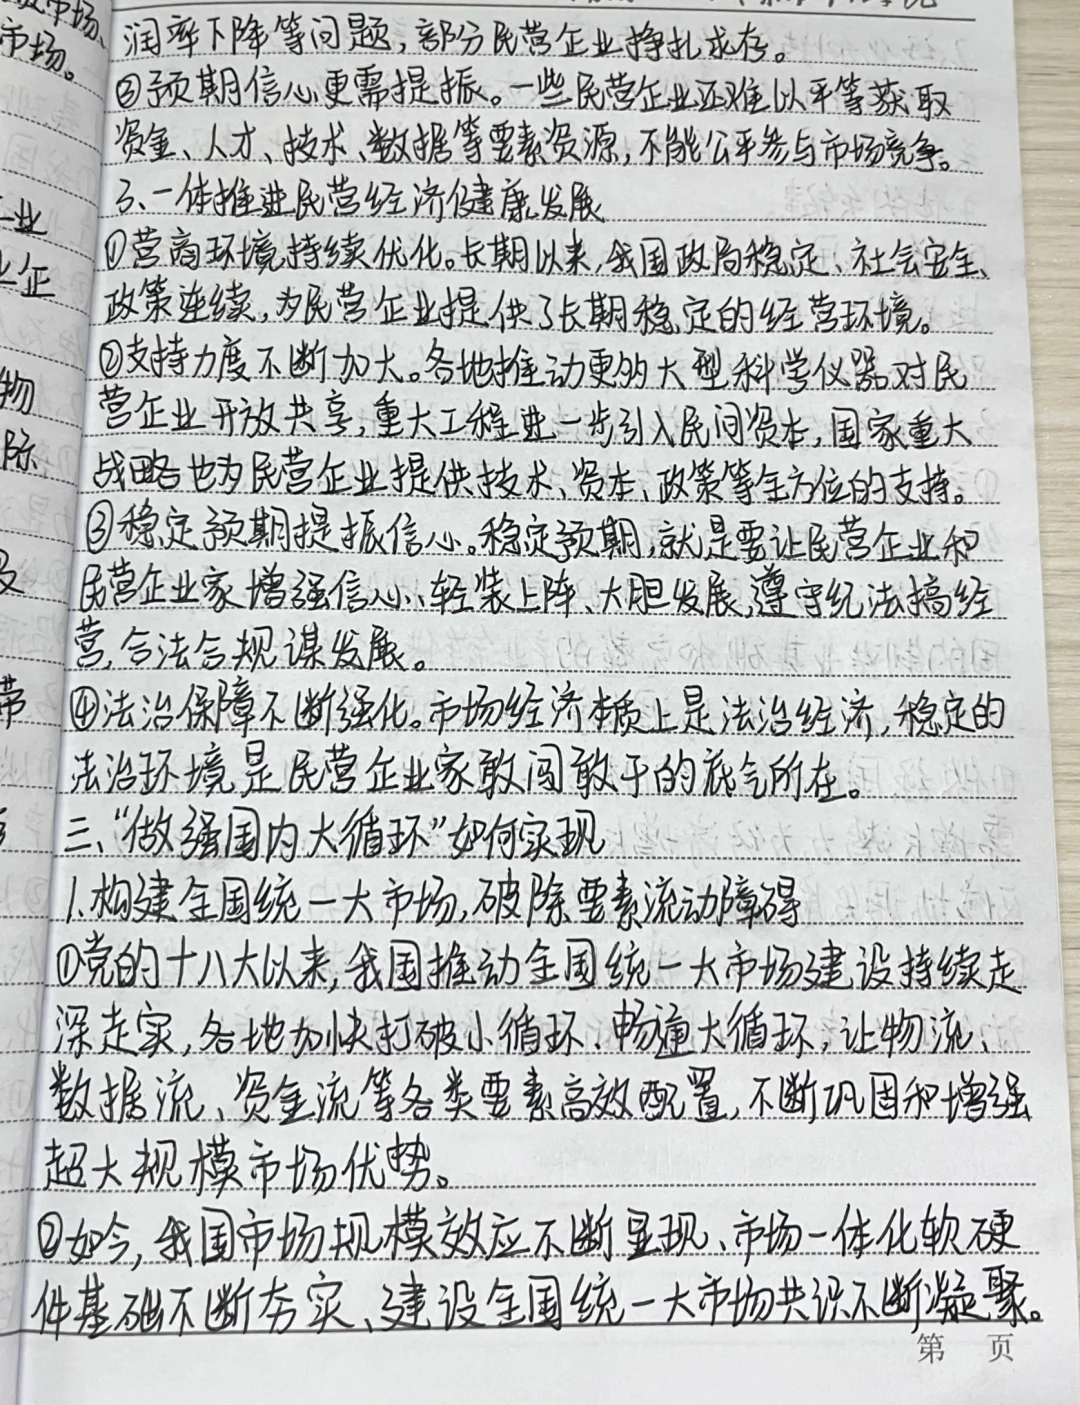 润率下降等问题,部分民营企业挣扎求存。
③预期信心更需提振。一些民营企业还难以平等获取
资金、人才、技术、数据等要素资源,不能公平参与市场竞争。
3、一体推进民营经济健康发展
①营商环境持续优化。长期以来,我国政局稳定、社会安全、
政策连续,为民营企业提供了长期稳定的经营环境。
②支持力度不断加大。各地推动更多大型科学仪器对民
营企业开放共享,重大工程进一步引入民间资本,国家重大
战略也为民营企业提供技术、资本、政策等全方位的支持。
③稳定预期提振信心。稳定预期,就是要让民营企业和
民营企业家增强信心、轻装上阵、大胆发展,遵守纪法搞经
营,合法合规谋发展。
④法治保障不断强化。市场经济本质上是法治经济,稳定的
法治环境是民营企业家敢闯敢干的底气所在。
三、“做强国内大循环”如何实现
1.构建全国统一大市场,破除要素流动障碍
①党的十八大以来,我国推动全国统一大市场建设持续走
深走实,各地加快打破小循环、畅通大循环,让物流、
数据流、资金流等各类要素高效配置,不断巩固和增强
超大规模市场优势。
②如今,我国市场规模效应不断显现、市场一体化软硬
件基础不断夯实、建设全国统一大市场共识不断凝聚。
第 页
市场。
业
企
物
际
带